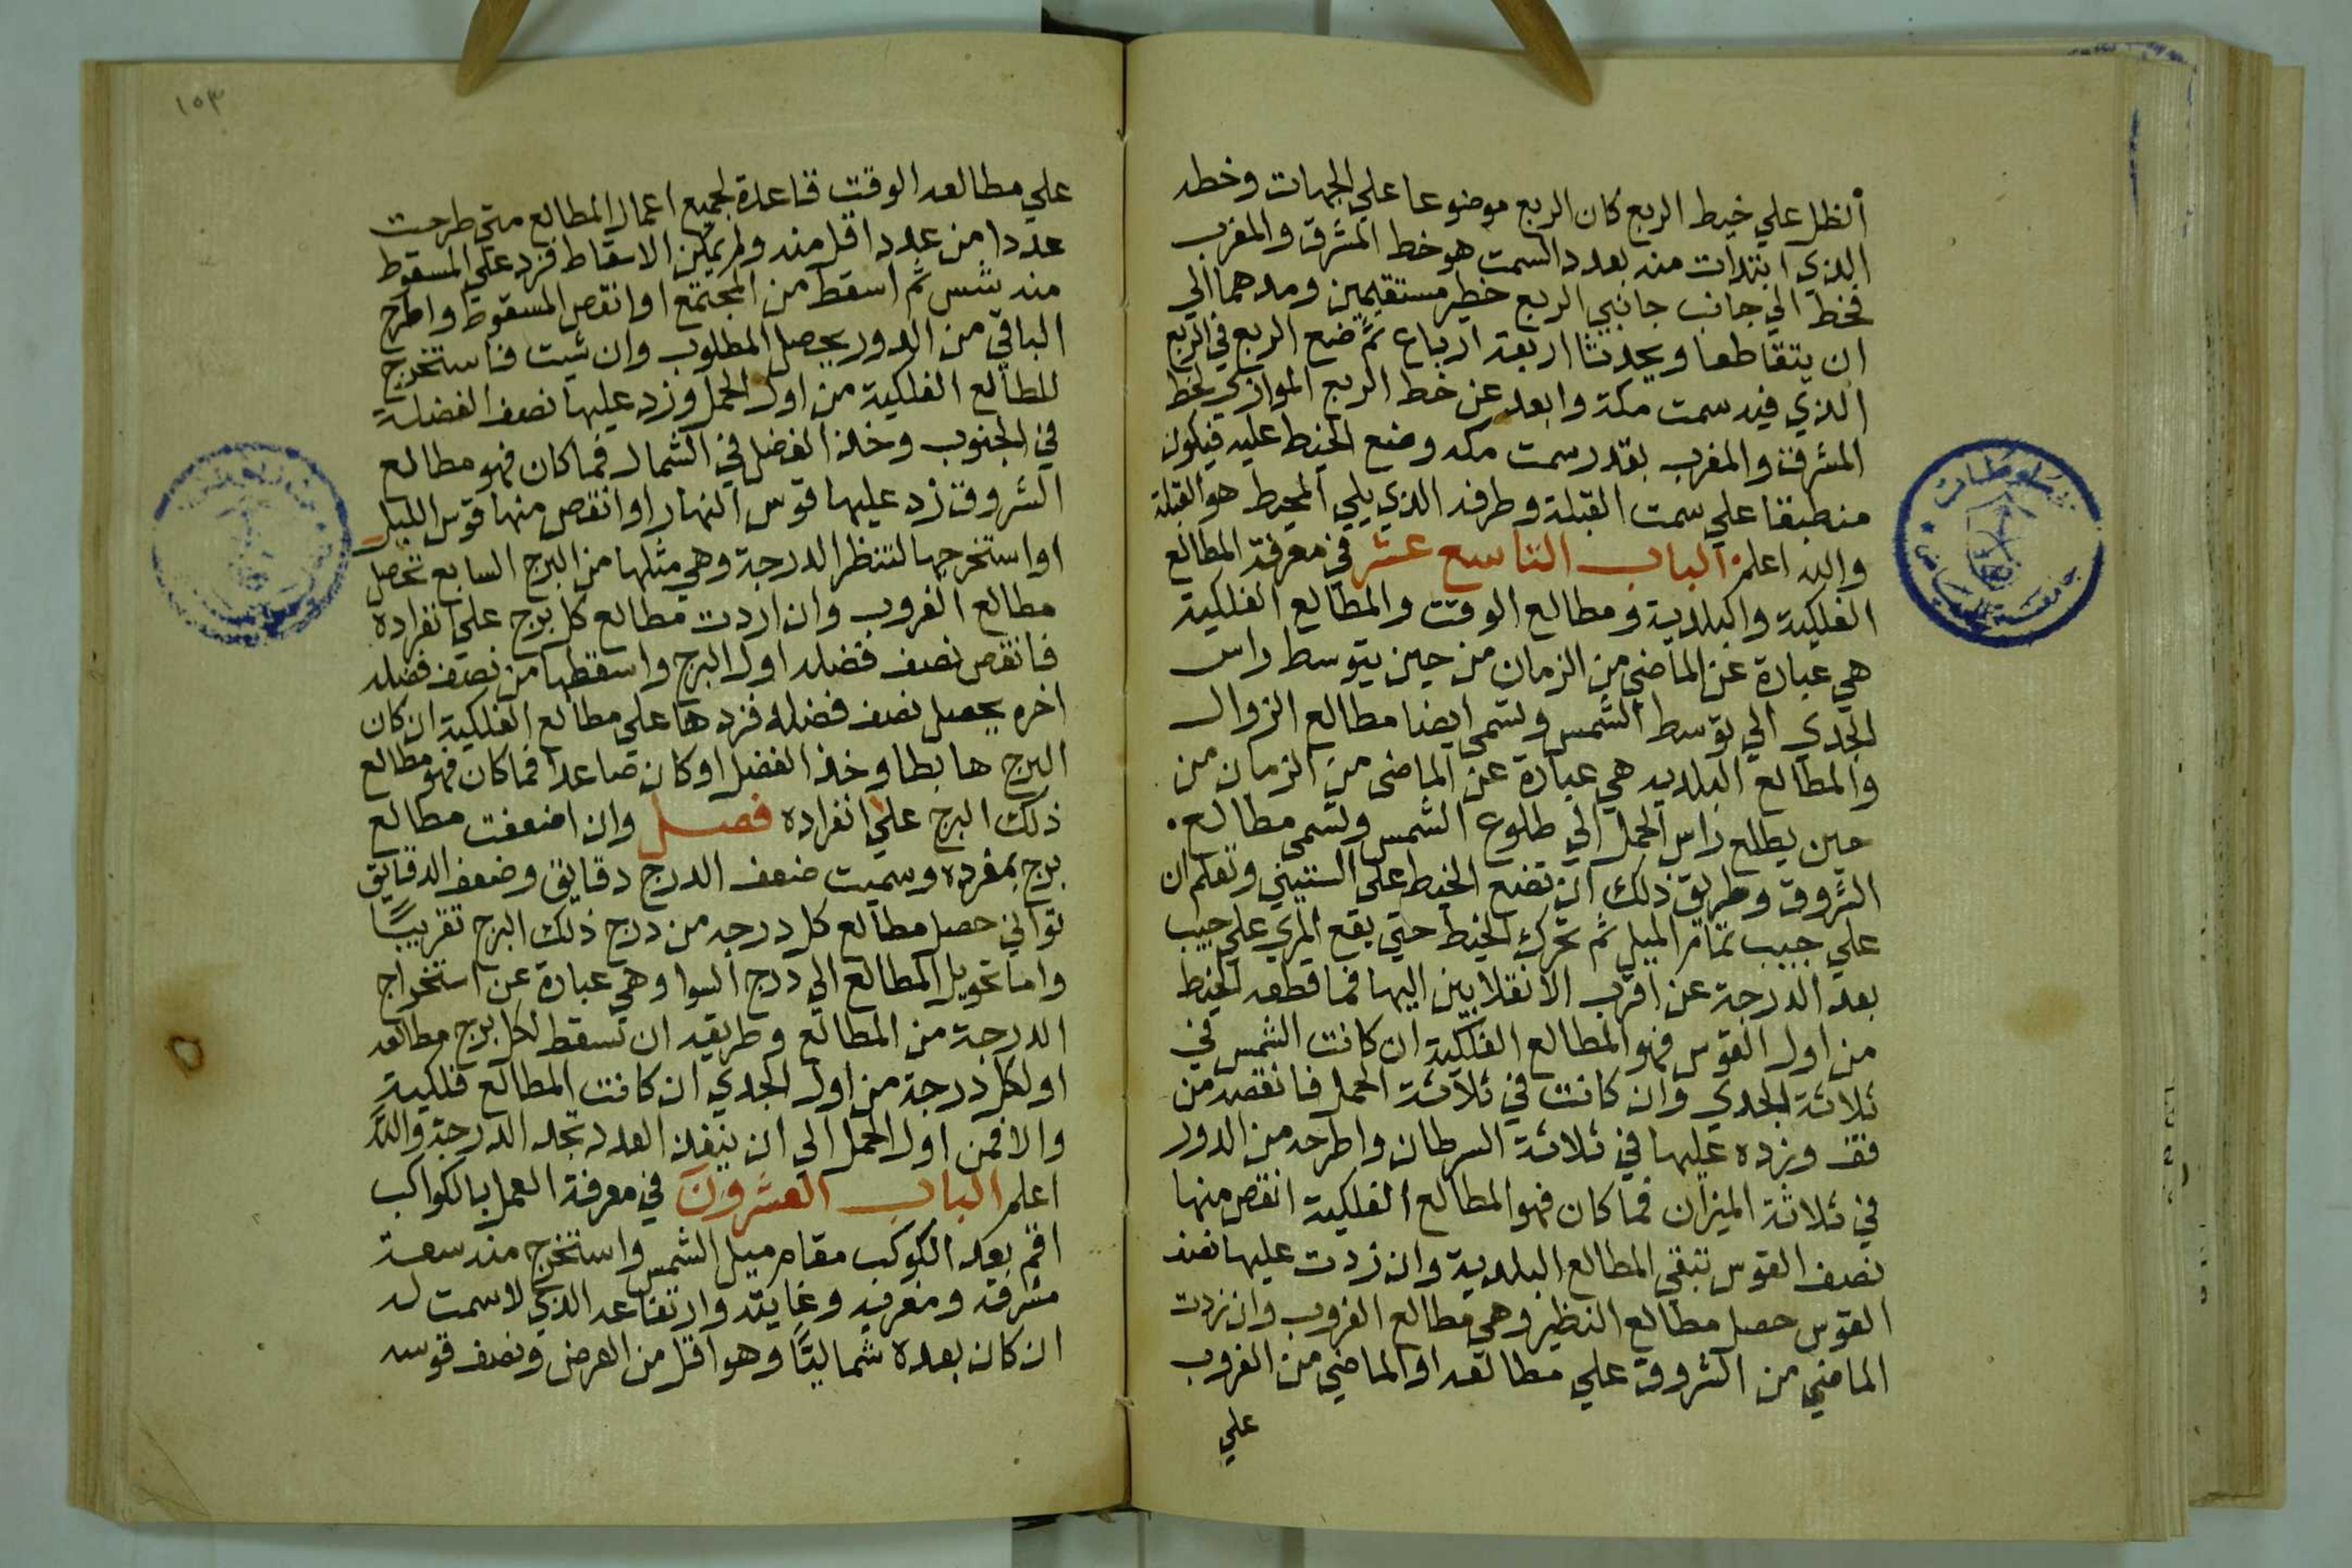 الظل علي خيط الربع كان الربع موضوعا علي الجهات وخطه
الذي ابتدات منه بعدد السمت هو خط المشرق والمغرب
فخط الي جانب جانبي الربع خطين مستقيمين ومدهما الي
ان يتقاطعا ويحدثا اربعة ارباع ثم ضع الربع في الربع
الذي فيه سمت مكة وابعد عن خط الربع الموازي لخط
المشرق والمغرب بقدر سمت مكه وضع الخيط عليه فيكون
منطبقا علي سمت القبلة وطرفه الذي يلي المحيط هو القبلة
والله اعلم الباب التاسع عشر في معرفة المطالع
الفلكية والبلدية ومطالع الوقت والمطالع الفلكية
هي عبارة عن الماضي من الزمان من حين يتوسط راس
الجدي الي توسط الشمس وتسمى ايضا مطالع الزوال
والمطالع البلديه هي عبارة عن الماضى من الزمان من
حين يطلع راس الحمل الي طلوع الشمس وتسمى مطالع
الشروق وطريق ذلك ان تضع الخيط على الستيني وتعلم ان
علي جيب تمام الميل ثم تحرك الخيط حتى يقع المري علي جيب
بعد الدرجة عن اقرب الانقلابين اليها فما قطعه الخيط
من اول القوس فهو المطالع الفلكية ان كانت الشمس في
ثلاثة الجدي وان كانت في ثلاثة الحمل فانقصه من
قف وزده عليها في ثلاثة السرطان واطرحه من الدور
في ثلاثة الميزان فما كان فهو المطالع الفلكية انقص منها
نصف القوس تبقى المطالع البلدية وان زدت عليها نصف
القوس حصل مطالع النظير وهي مطالع الغروب وان زدت
الماضي من الشروق علي مطالعه او الماضي من الغروب
علي
١٠٣
علي مطالعه الوقت قاعدة لجميع اعمال المطالع متى طرحت
عددا من عدد اقل منه ولم يمكن الاسقاط فزد على المسقوط
منه شس ثم اسقط من المجتمع او انقص المسقوط واطرح
الباقي من الدور يحصل المطلوب وان شيت فاستخرج
المطالع الفلكية من اول الحمل وزد عليها نصف الفضلة
في الجنوب وخذ الفضل في الشمال فما كان فهو مطالع
الشروق زد عليها قوس النهار او انقص منها قوس الليل
او استخرجها لتنظر الدرجة وهي مثلها من البرج السابع تحصل
مطالع الغروب وان اردت مطالع كل برج علي انفراده
فانقص نصف فضله اول البرج واسقطها من نصف فضله
اخره يحصل نصف فضله فزدها على مطالع الفلكية ان كان
البرج هابطا وخذ الفضل او كان صاعدا فما كان فهو مطالع
ذلك البرج علي انفراده فصل وان اضعفت مطالع
برج بمفرده وسميت ضعف الدرج دقايق وضعف الدقايق
ثواني حصل مطالع كل درجه من درج ذلك البرج تقريبًا
واما تحويل المطالع الي درج السوا وهي عبارة عن استخراج
الدرجة من المطالع وطريقه ان تسقط لكل برج مطالعه
او لكل درجة من اول الجدي ان كانت المطالع فلكية
والا فمن اول الحمل الى ان ينفذ العدد تجد الدرجة والله
اعلم الباب العشرون في معرفة العمل بالكواكب
اقم بعد الكوكب مقام ميل الشمس واستخرج منه سعة
مشرقه ومغربه وغايته وارتفاعه الذي لا سمت له
ان كان بعده شماليًا وهو اقل من العرض ونصف قوسه